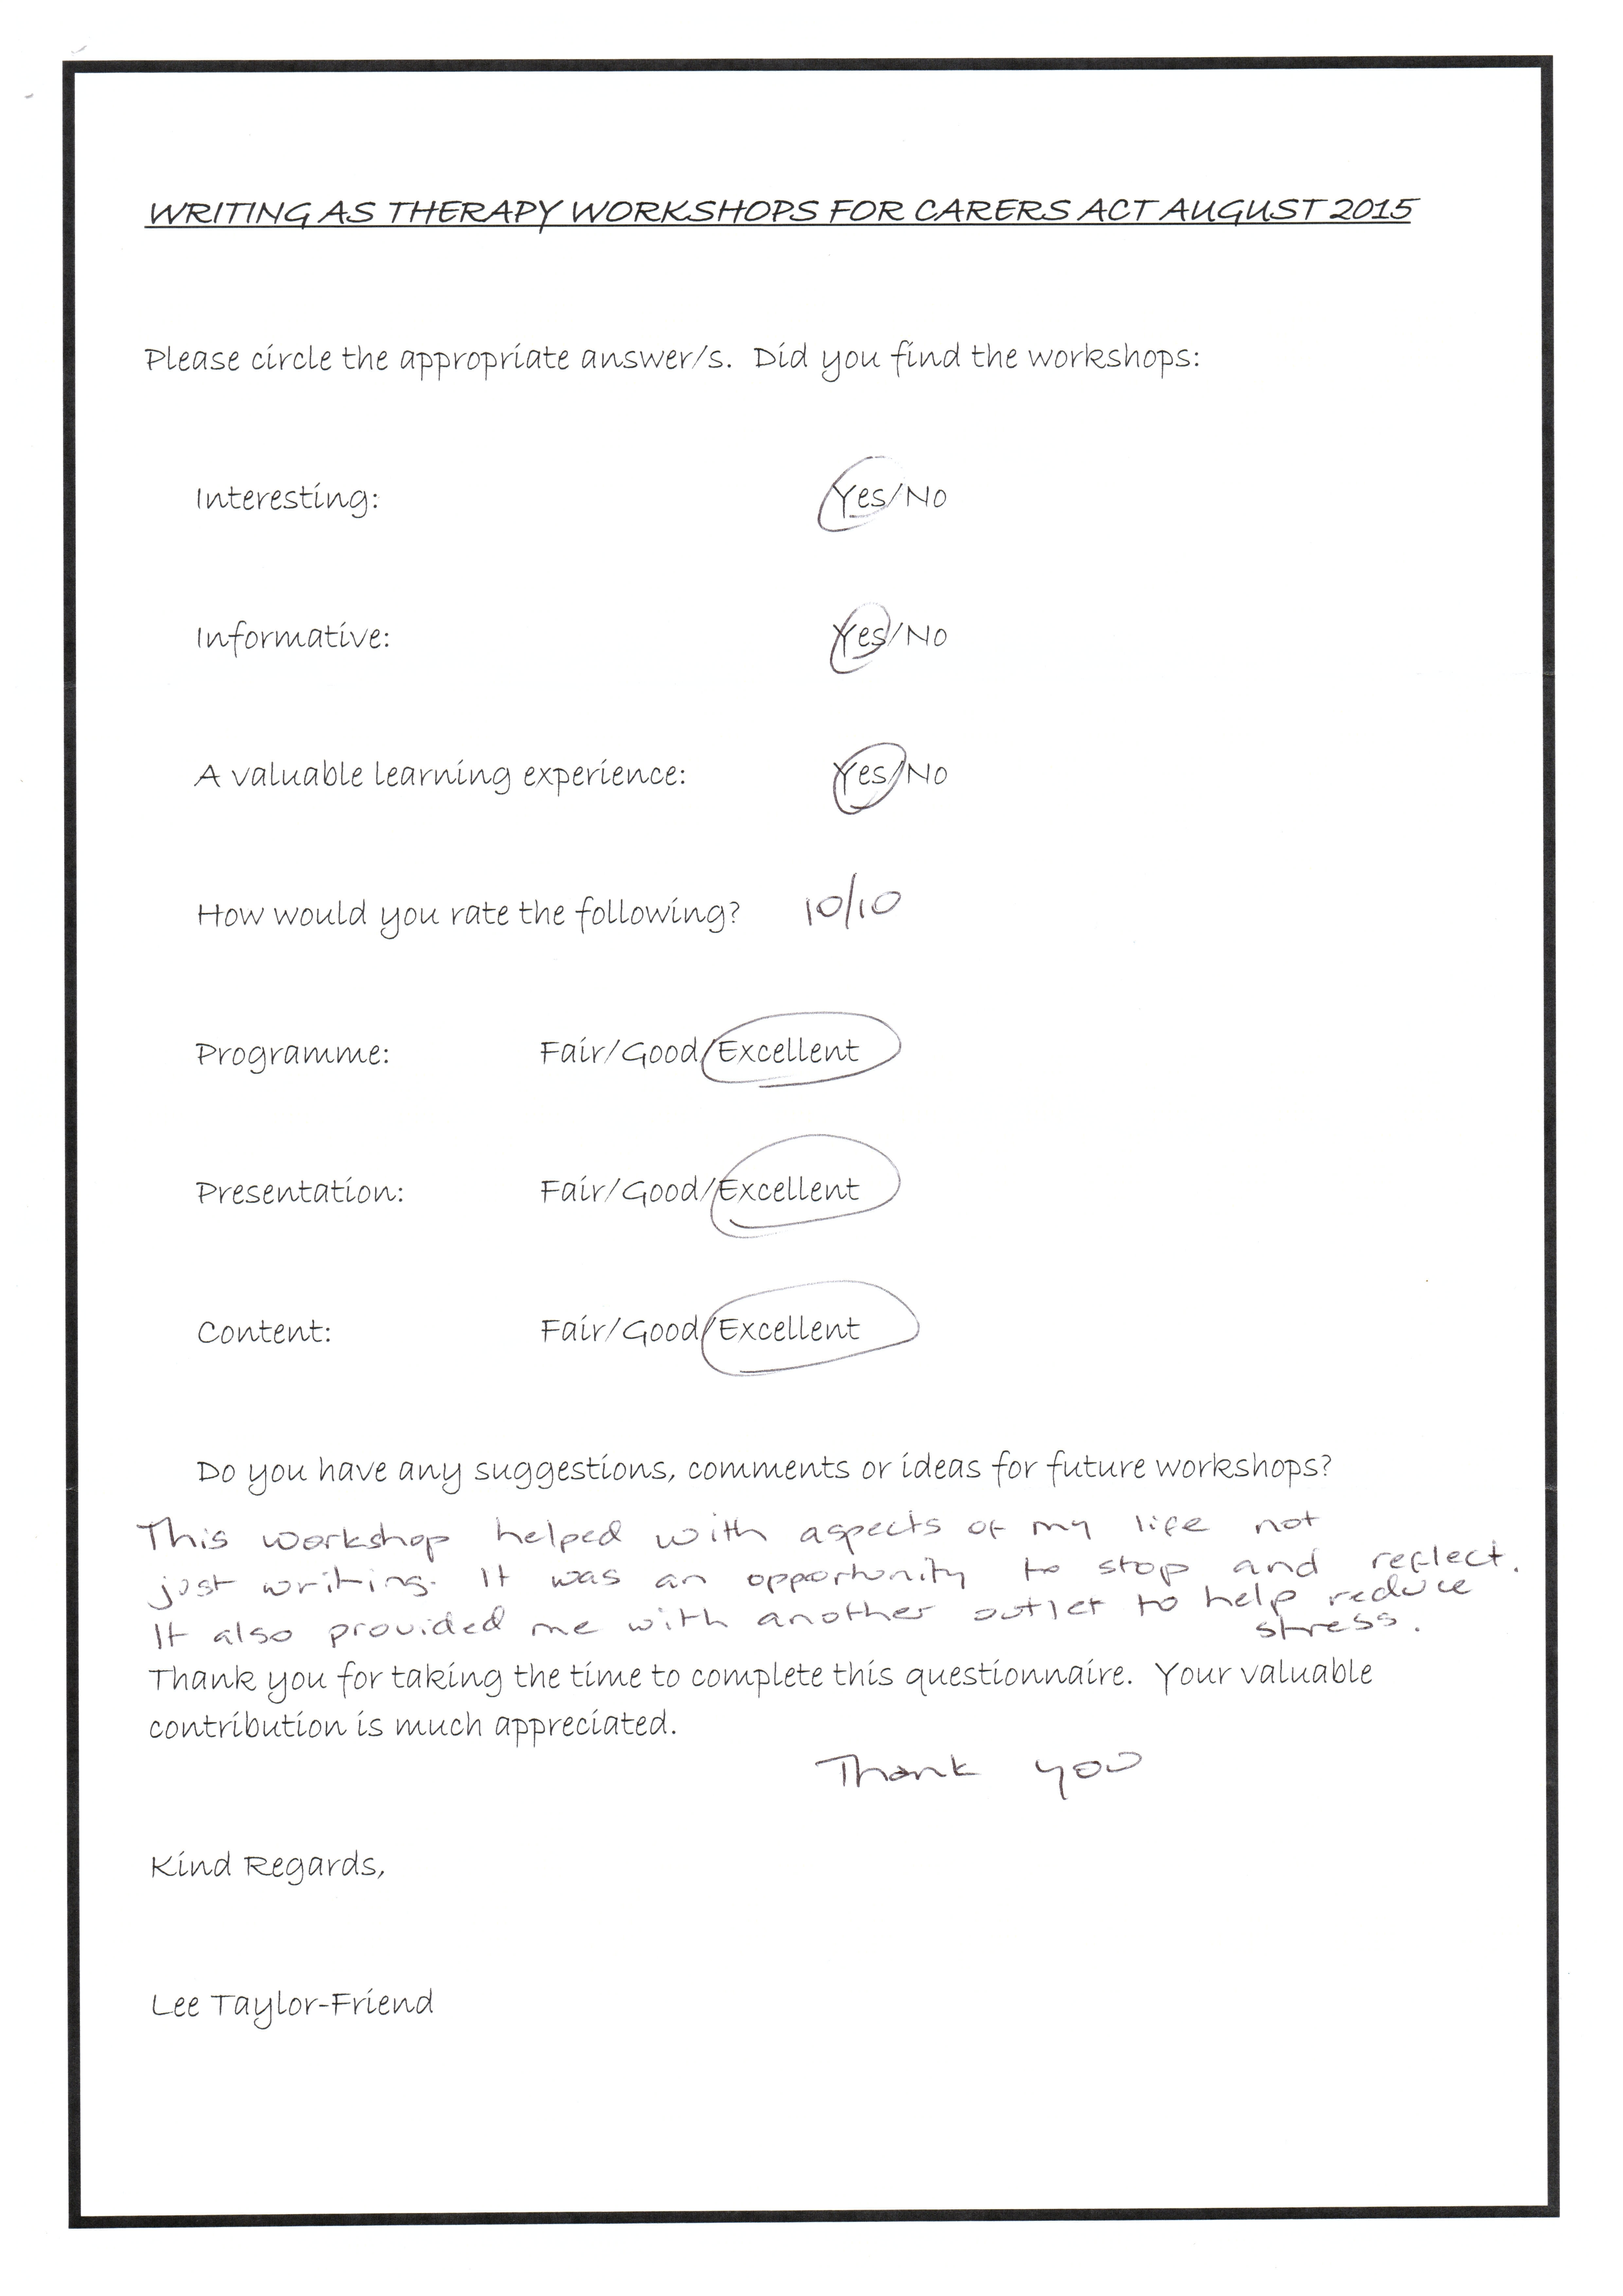 WRITING AS THERAPY WORKSHOPS FOR CARERS ACT AUGUST 2015
Please circle the appropriate answer/s. Did you find the workshops:
Interesting: Yes/No
Informative: Yes/No
A valuable learning experience: Yes/No
How would you rate the following? 10/10
Programme: Fair/Good/Excellent
Presentation: Fair/Good/Excellent
Content: Fair/Good/Excellent
Do you have any suggestions, comments or ideas for future workshops?
This workshop helped with aspects of my life not
just writing. It was an opportunity to stop and reflect.
It also provided me with another outlet to help reduce
stress.
Thank you for taking the time to complete this questionnaire. Your valuable
contribution is much appreciated.
Thank you
Kind Regards,
Lee Taylor-Friend